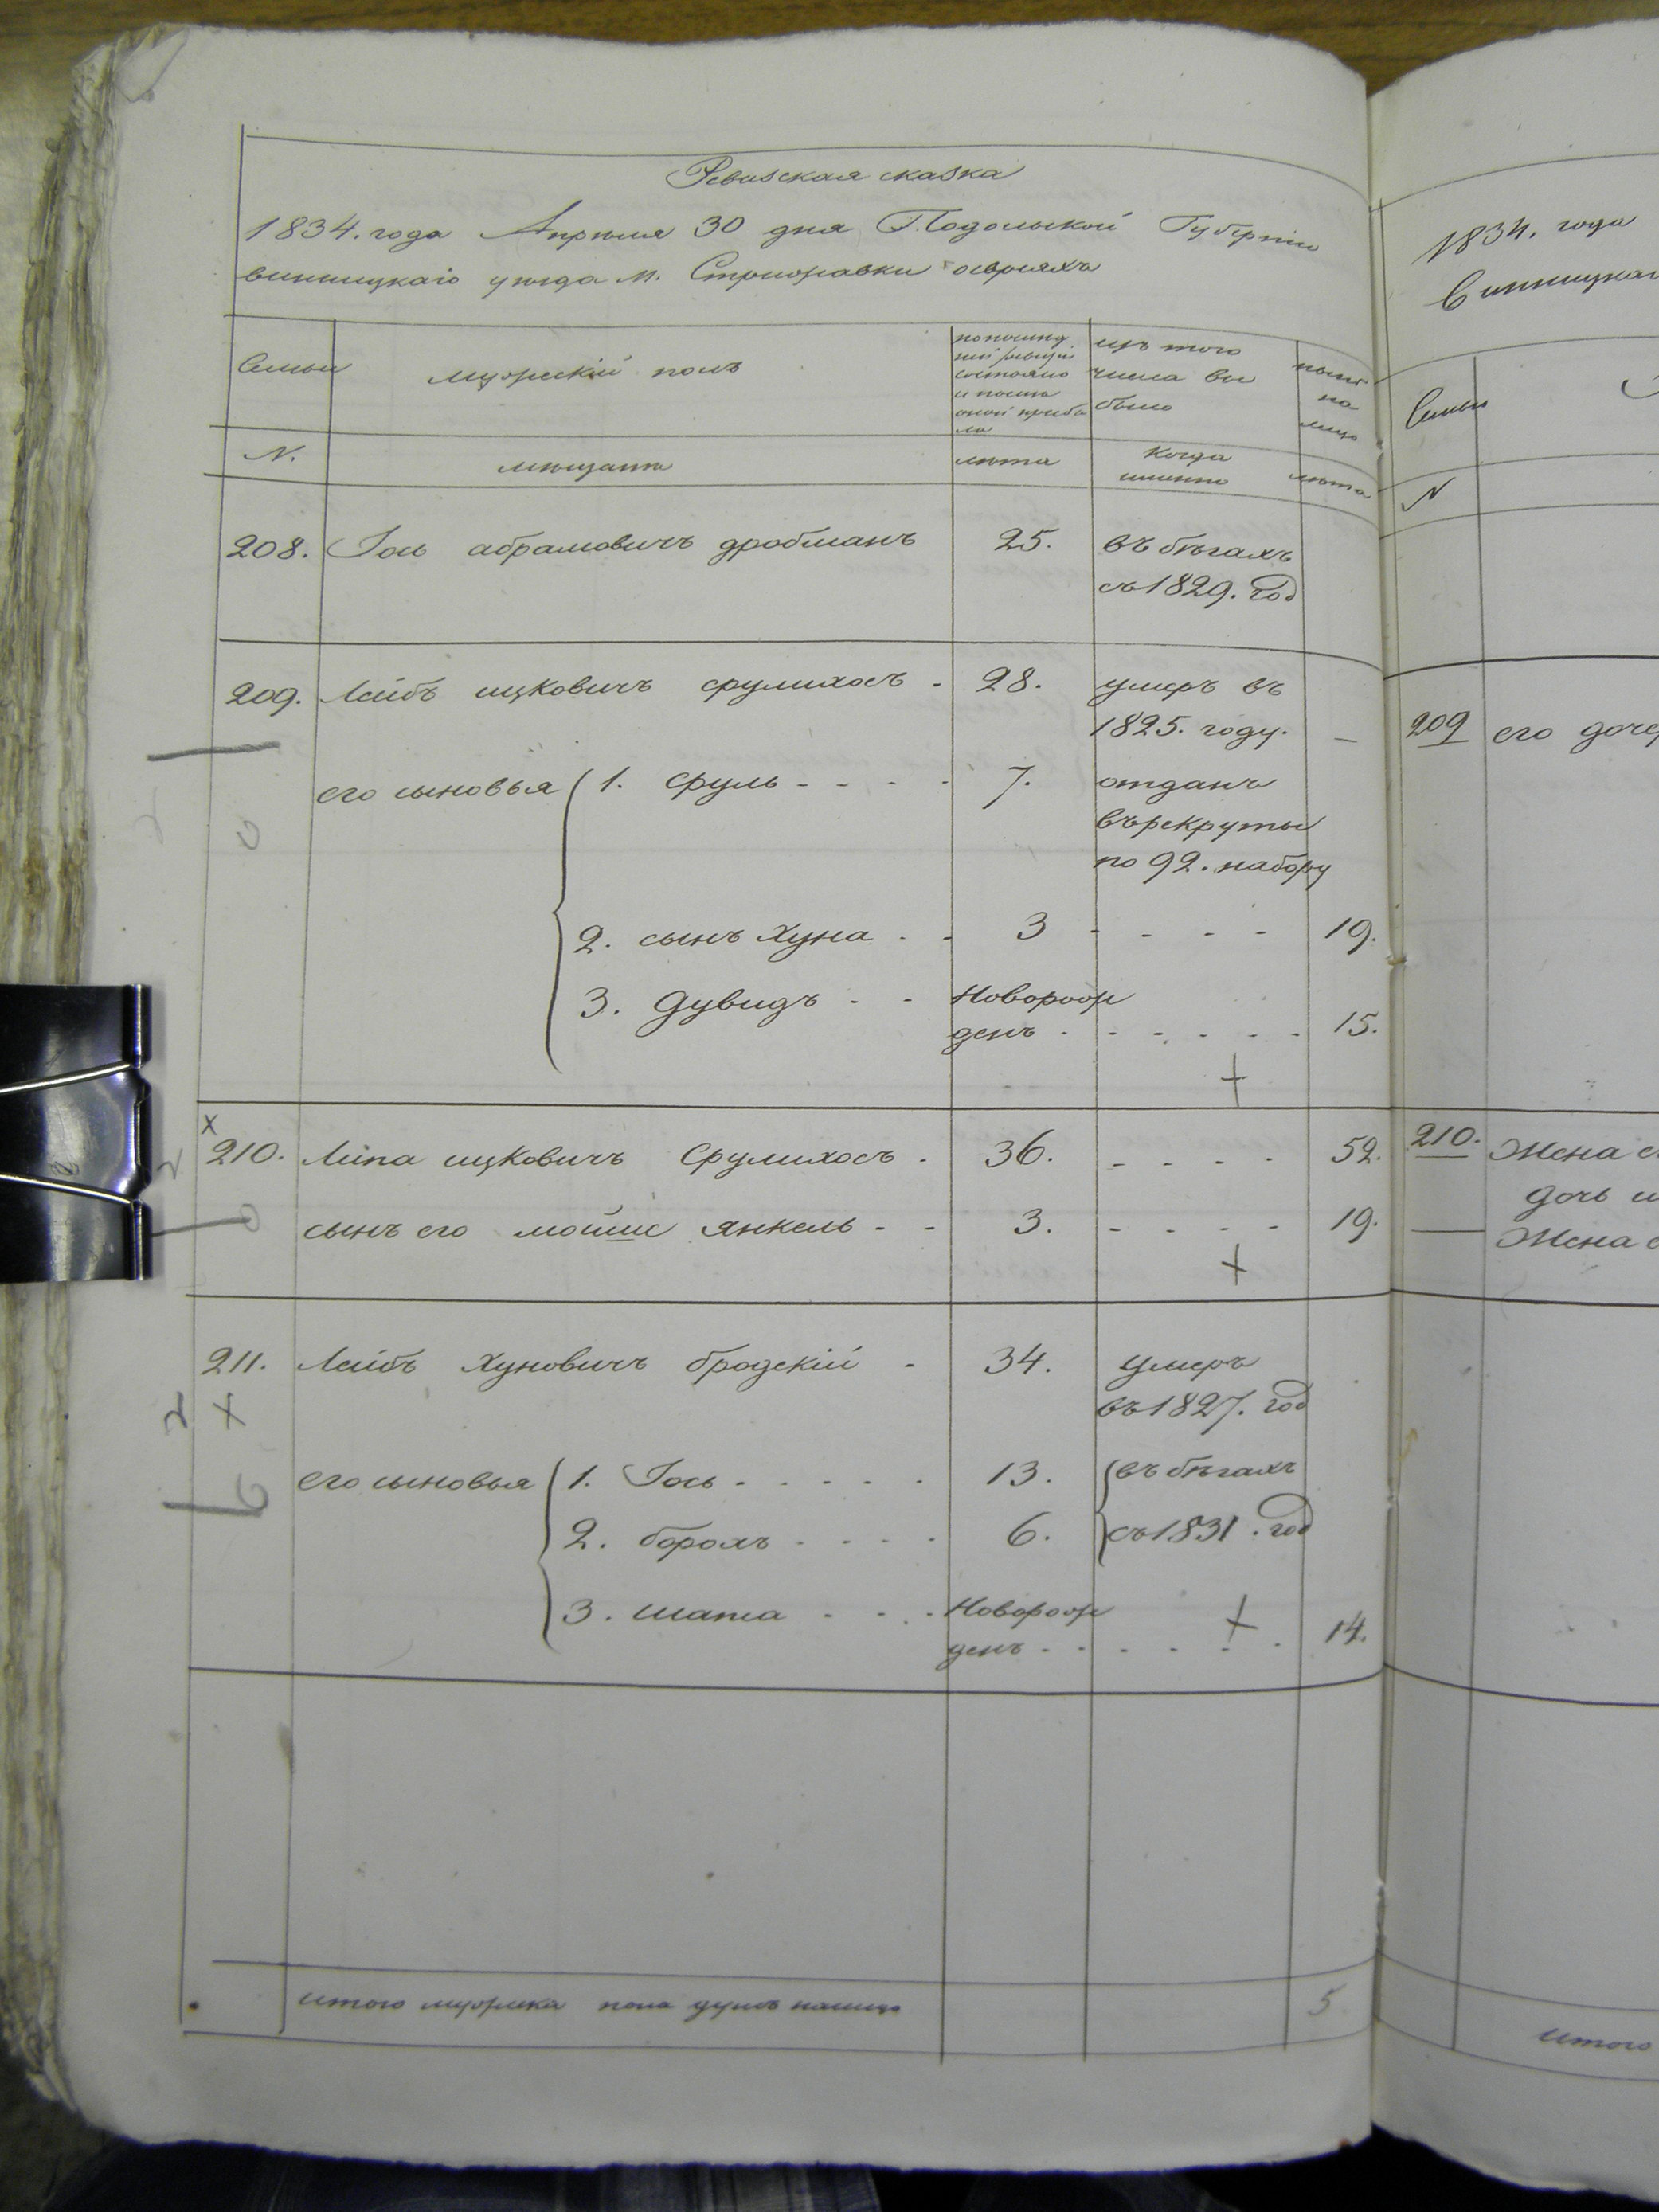 Ревизская сказка
1834. года Апреля 30 дня Подольской Губерніи
винницкаго уезда м. Стрижавки о евреяхъ
Семьи
мужескій полъ
по последней ревизіи состояло и после оной прибыло
изъ того числа выбыло
ныне на лицо
N.
мещане
лета
Когда именно
лета
208. Іось абрамовичъ дробманъ 25. въ бегахъ
съ 1829. год
209. Лейбъ ицковичъ срулихосъ - 28. умеръ въ
1825. году. —
его сыновья 1. сруль - - - - 7. отданъ
въ рекруты
по 92. набору
2. сынъ Хуна - - 3 - - - - 19.
3. Дувидъ - - Новорож
денъ - - - - - - 15.
+
х
210. Липа ицковичъ Срулихосъ - 36. - - - - 52.
сынъ его мойше янкель - - 3. - - - - 19.
+
211. Лейбъ Хуновичъ бродскій - 34. умеръ
въ 1827. год
+
его сыновья 1. Іось - - - - - 13. въ бегахъ
2. борохъ - - - - 6. съ 1831. год
3. шата - - - Новорож
+
денъ - - - - - - 14.
итого мужеска пола душъ налицо 5
1834. года
Винницкаг
Семьи
N
209 его доче
210. Жена е
дочь и
Жена е
итого